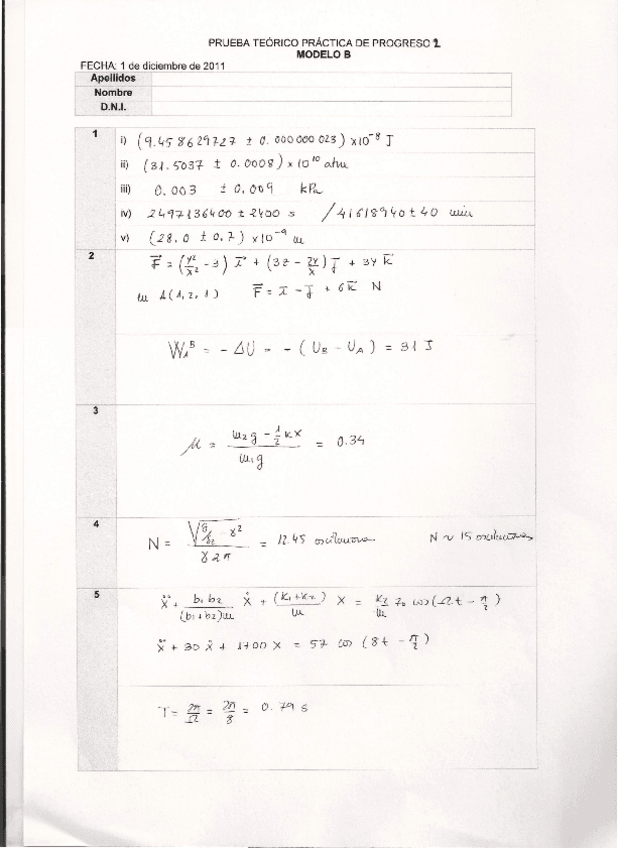 PRUEBA TEÓRICO PRÁCTICA DE PROGRESO 2
MODELO B
FECHA: 1 de diciembre de 2011
Apellidos
Nombre
D.N.I.
1
i) (9.458629727 ± 0.000000023) x10⁻⁸ J
ii) (31.5037 ± 0.0008) x 10¹⁰ atm
iii) 0.003 ± 0.009 kPa
iv) 2497136400 ± 2400 s / 41618940 ± 40 min
v) (28.0 ± 0.7) x10⁻⁹ m
2
F⃗ = (y²/x² - 3) i⃗ + (3z - 2y/x) j⃗ + 3y k⃗
en A(1,2,1) F⃗ = i⃗ - j⃗ + 6k⃗ N
W_A^B = - ΔU = - (U_B - U_A) = 31 J
3
μ = (m₂g - ½kx) / (m₁g) = 0.34
4
N = / γ2π = 12.45 oscilaciones N ~ 15 oscilaciones
5
ẍ + b₁b₂/((b₁+b₂)m) ẋ + (k₁+k₂)/m x = k₂/m z₀ cos(Ωt - π/2)
ẍ + 30 ẋ + 1700 x = 57 cos (8t - π/2)
T = 2π/Ω = 2π/8 = 0.79 s